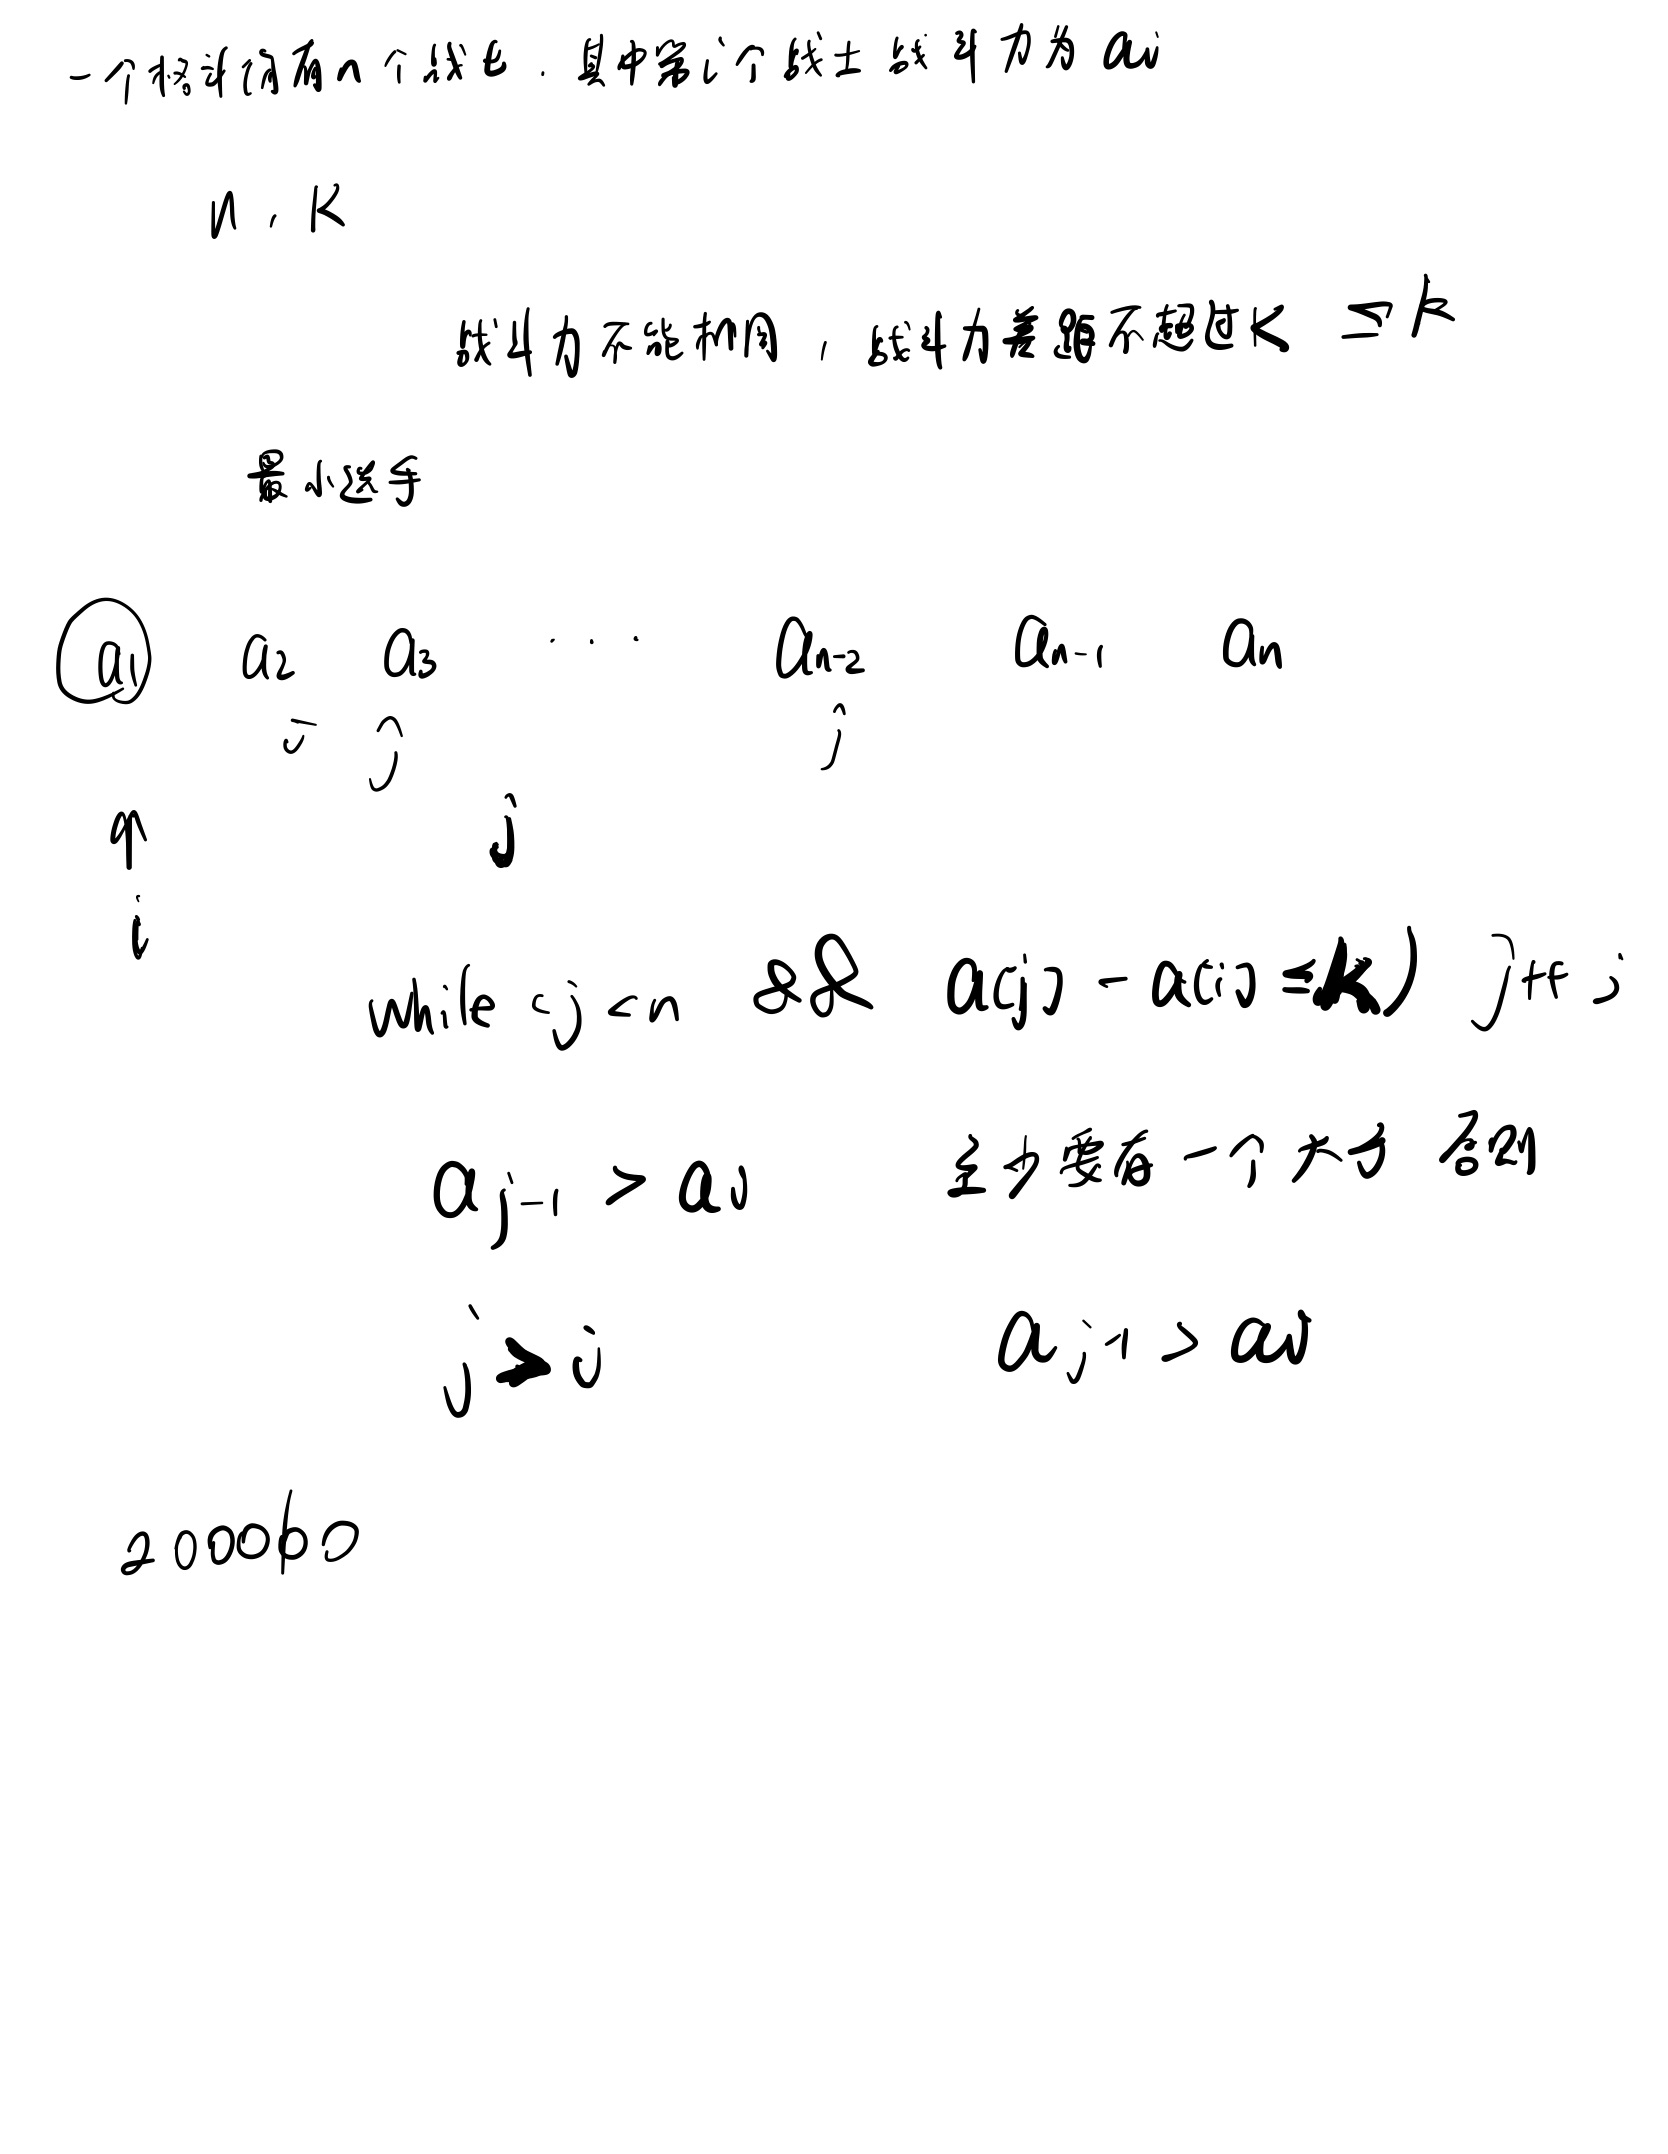 一个格斗场有n个战士．其中第i个战士战斗力为ai
n，K
战斗力不能相同，战斗力差距不超过K ≤k
最小选手
a1 a2 a3 ... an-2 an-1 an
j j j
j
↑
i
while (j<n && a[j] - a[i] ≤k) j++;
aj-1 > ai 至少要有一个大于 否则
j > i aj-1 > ai
200000